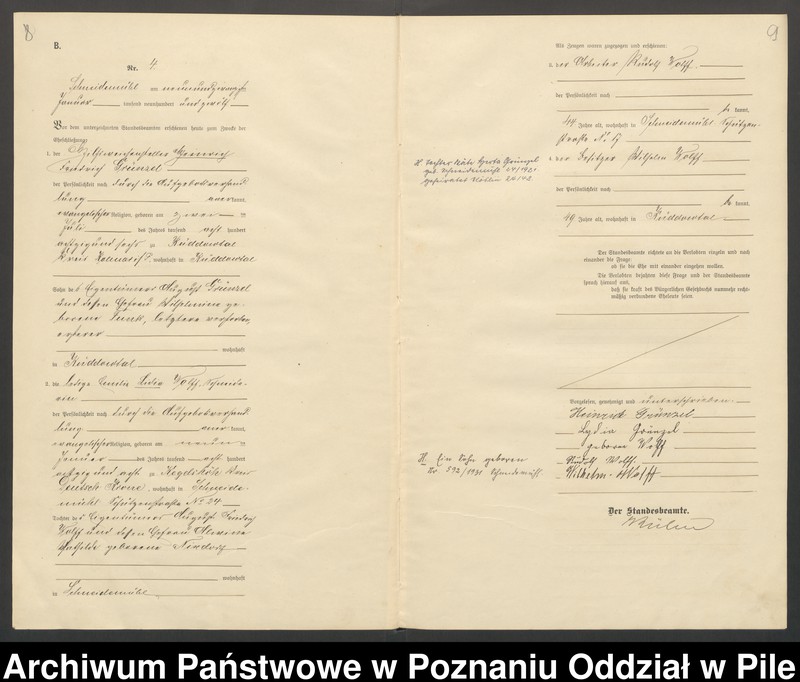 8
B.
Nr. 4.
Schneidemühl am neunundzwanzigsten
Januar tausend neunhundert und zwölf
Vor dem unterzeichneten Standesbeamten erschienen heute zum Zwecke der
Eheschließung:
1. der Heinrich
Friedrich Grünzel
der Persönlichkeit nach durch die Aufgebotsverhand
lung anerkannt,
evangelischer Religion, geboren am zwei
Juli des Jahres tausend acht hundert
achtzig und sechs in Küddowtal
Kreis Kolmar i. P., wohnhaft in Küddowtal
Sohn des Eigentümers August Grünzel
und dessen Ehefrau Wilhelmine ge-
borene Funk, letztere verstorben,
ersterer
wohnhaft
in Küddowtal
2. die ledige Emilie Lidia Wolff, Schneide-
rin
der Persönlichkeit nach durch die Aufgebotsverhand
lung anerkannt,
evangelischer Religion, geboren am neun
Januar des Jahres tausend acht hundert
achtzig und acht in Kreis
Deutsch Krone, wohnhaft in Schneide-
mühl Schützenstraße No 24
Tochter des Eigentümers August Friedrich
Wolff und dessen Ehefrau
geborene
wohnhaft
in Schneidemühl
9
Als Zeugen waren zugezogen und erschienen:
3. der Arbeiter Rudolf Wolff
der Persönlichkeit nach
be kannt,
44 Jahre alt, wohnhaft in Schneidemühl Schützen-
straße
4. der Besitzer Wilhelm Wolff
der Persönlichkeit nach
be kannt,
49 Jahre alt, wohnhaft in Küddowtal
Der Standesbeamte richtete an die Verlobten einzeln und nach
einander die Frage:
ob sie die Ehe mit einander eingehen wollen.
Die Verlobten bejahten diese Frage und der Standesbeamte
sprach hierauf aus,
daß sie kraft des Bürgerlichen Gesetzbuchs nunmehr recht-
mäßig verbundene Eheleute seien.
Vorgelesen, genehmigt und unterschrieben.
Heinrich Grünzel
Lydia Grünzel
geborne Wolff
Rudolf Wolff.
Wilhelm Wolff
Der Standesbeamte.
Tochter Grünzel
geb. Schneidemühl
geheiratet
H. Ein Sohn geboren
Nr. 592/1931 Schneidemühl.
Archiwum Państwowe w Poznaniu Oddział w Pile